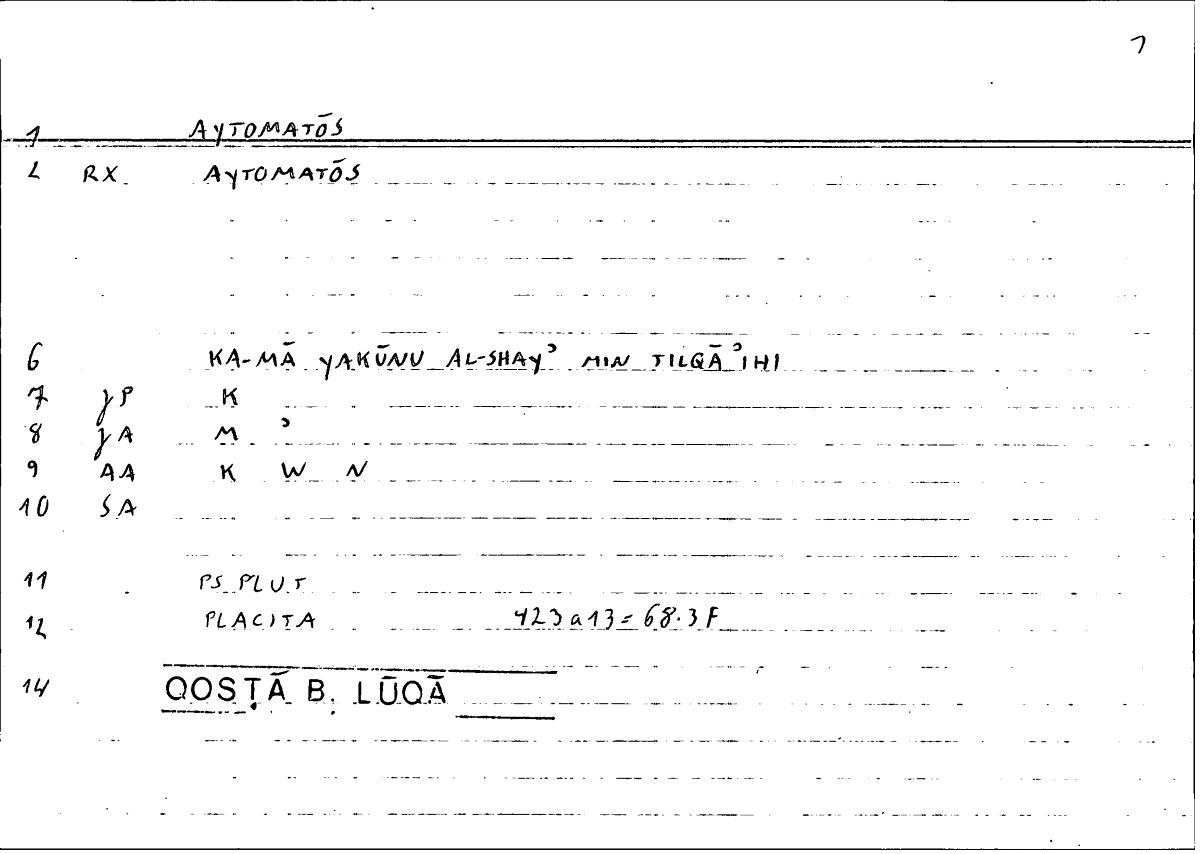 1
1 AYTOMATŌS
2 RX AYTOMATŌS
6 KA-MĀ YAKŪNU AL-SHAYʾ MIN TILQĀʾIHI
7 γP K
8 γA M ʾ
9 AA K W N
10 SA
11 PS.PLUT
12 PLACITA 423a13=68.3F
14 QOSṬĀ B. LŪQĀ